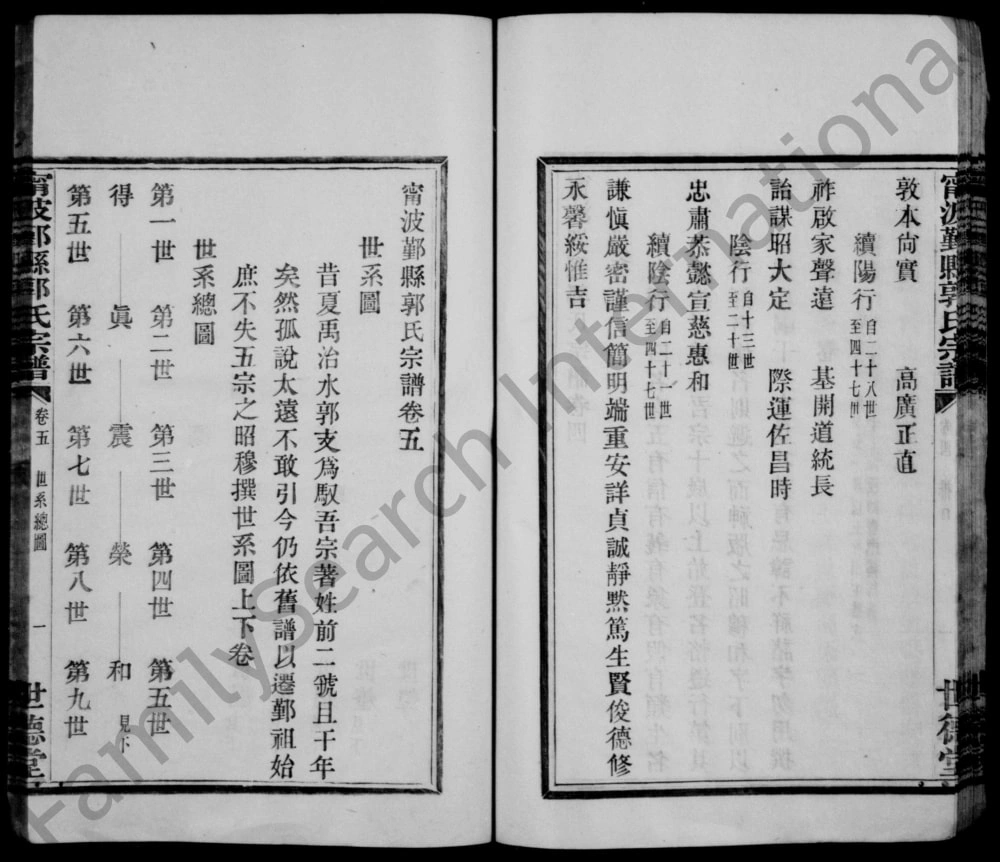 甯波鄞縣郭氏宗譜
世德堂
敦本尙實　高廣正直
續陽行 自二十八世至四十七世
祚啟家聲遠　基開道統長
詒謀昭大定　際運佐昌時
陰行 自十三世至二十世
忠肅恭懿宣慈惠和
續陰行 自二十一世至四十七世
謙愼嚴密謹信簡明端重安詳貞誠靜默篤生賢俊德修
永馨綏惟吉
甯波鄞縣郭氏宗譜卷五
世系圖
昔夏禹治水郭支爲馭吾宗著姓前二號且千年
矣然孤說太遠不敢引今仍依舊譜以遷鄞祖始
庶不失五宗之昭穆撰世系圖上下卷
世系總圖
第一世　第二世　第三世　第四世　第五世
得　眞　震　榮　和 見下
第五世　第六世　第七世　第八世　第九世
甯波鄞縣郭氏宗譜　卷五　世系總圖　一　世德堂
FamilySearch International